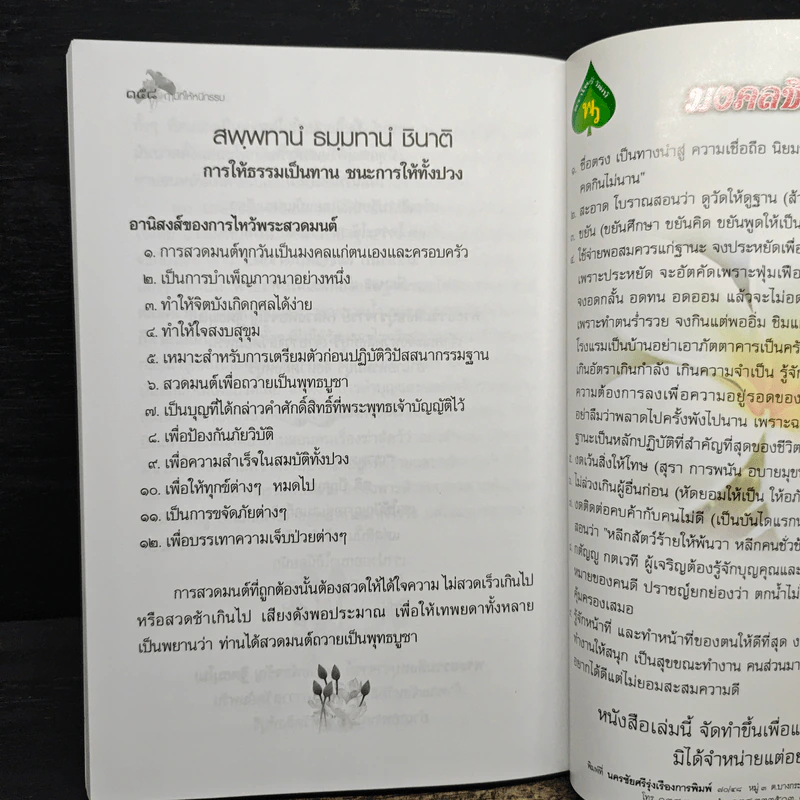 ๑๕๘
สพฺพทานํ ธมฺมทานํ ชินาติ
การให้ธรรมเป็นทาน ชนะการให้ทั้งปวง
อานิสงส์ของการไหว้พระสวดมนต์
๑. การสวดมนต์ทุกวันเป็นมงคลแก่ตนเองและครอบครัว
๒. เป็นการบำเพ็ญภาวนาอย่างหนึ่ง
๓. ทำให้จิตบังเกิดกุศลได้ง่าย
๔. ทำให้ใจสงบสุขุม
๕. เหมาะสำหรับการเตรียมตัวก่อนปฏิบัติวิปัสสนากรรมฐาน
๖. สวดมนต์เพื่อถวายเป็นพุทธบูชา
๗. เป็นบุญที่ได้กล่าวคำศักดิ์สิทธิ์ที่พระพุทธเจ้าบัญญัติไว้
๘. เพื่อป้องกันภัยวิบัติ
๙. เพื่อความสำเร็จในสมบัติทั้งปวง
๑๐. เพื่อให้ทุกข์ต่างๆ หมดไป
๑๑. เป็นการขจัดภัยต่างๆ
๑๒. เพื่อบรรเทาความเจ็บป่วยต่างๆ
การสวดมนต์ที่ถูกต้องนั้นต้องสวดให้ได้ใจความ ไม่สวดเร็วเกินไป
หรือสวดช้าเกินไป เสียงดังพอประมาณ เพื่อให้เทพยดาทั้งหลาย
เป็นพยานว่า ท่านได้สวดมนต์ถวายเป็นพุทธบูชา
มงคลชี
๑. ซื่อตรง เป็นทางนำสู่ ความเชื่อถือ นิยม
คดกินไม่นาน"
๒. สะอาด โบราณสอนว่า ดูวัดให้ดูฐาน (ส้
๓. ขยัน (ขยันศึกษา ขยันคิด ขยันพูดให้เป็น
๔. ใช้จ่ายพอสมควรแก่ฐานะ จงประหยัดเพื่อ
เพราะประหยัด จะอัตคัดเพราะฟุ่มเฟือ
จงอดกลั้น อดทน อดออม แล้วจะไม่อด
เพราะทำตนร่ำรวย จงกินแต่พออิ่ม ชิมแ
โรงแรมเป็นบ้านอย่าเอาภัตตาคารเป็นครั
เกินอัตราเกินกำลัง เกินความจำเป็น รู้จัก
ความต้องการลงเพื่อความอยู่รอดของ
อย่าลืมว่าพลาดไปครั้งพังไปนาน เพราะฉ
ฐานะเป็นหลักปฏิบัติที่สำคัญที่สุดของชีวิต
งดเว้นสิ่งให้โทษ (สุรา การพนัน อบายมุข
ไม่ล่วงเกินผู้อื่นก่อน (หัดยอมให้เป็น ให้อภั
งดติดต่อคบค้ากับคนไม่ดี (เป็นบันไดแรก
สอนว่า "หลีกสัตว์ร้ายให้พ้นวา หลีกคนชั่วช้
กตัญญู กตเวที ผู้เจริญต้องรู้จักบุญคุณและ
หมายของคนดี ปราชญ์ยกย่องว่า ตกน้ำไม่
คุ้มครองเสมอ
รู้จักหน้าที่ และทำหน้าที่ของตนให้ดีที่สุด
ทำงานให้สนุก เป็นสุขขณะทำงาน คนส่วนมา
อยากได้ดีแต่ไม่ยอมสะสมความดี
หนังสือเล่มนี้ จัดทำขึ้นเพื่อแ
มิได้จำหน่ายแต่อย
พิมพ์ที่ นครชัยศรีรุ่งเรืองการพิมพ์ ๗๐/๔๘ หมู่ ๓ ต.บางกระ